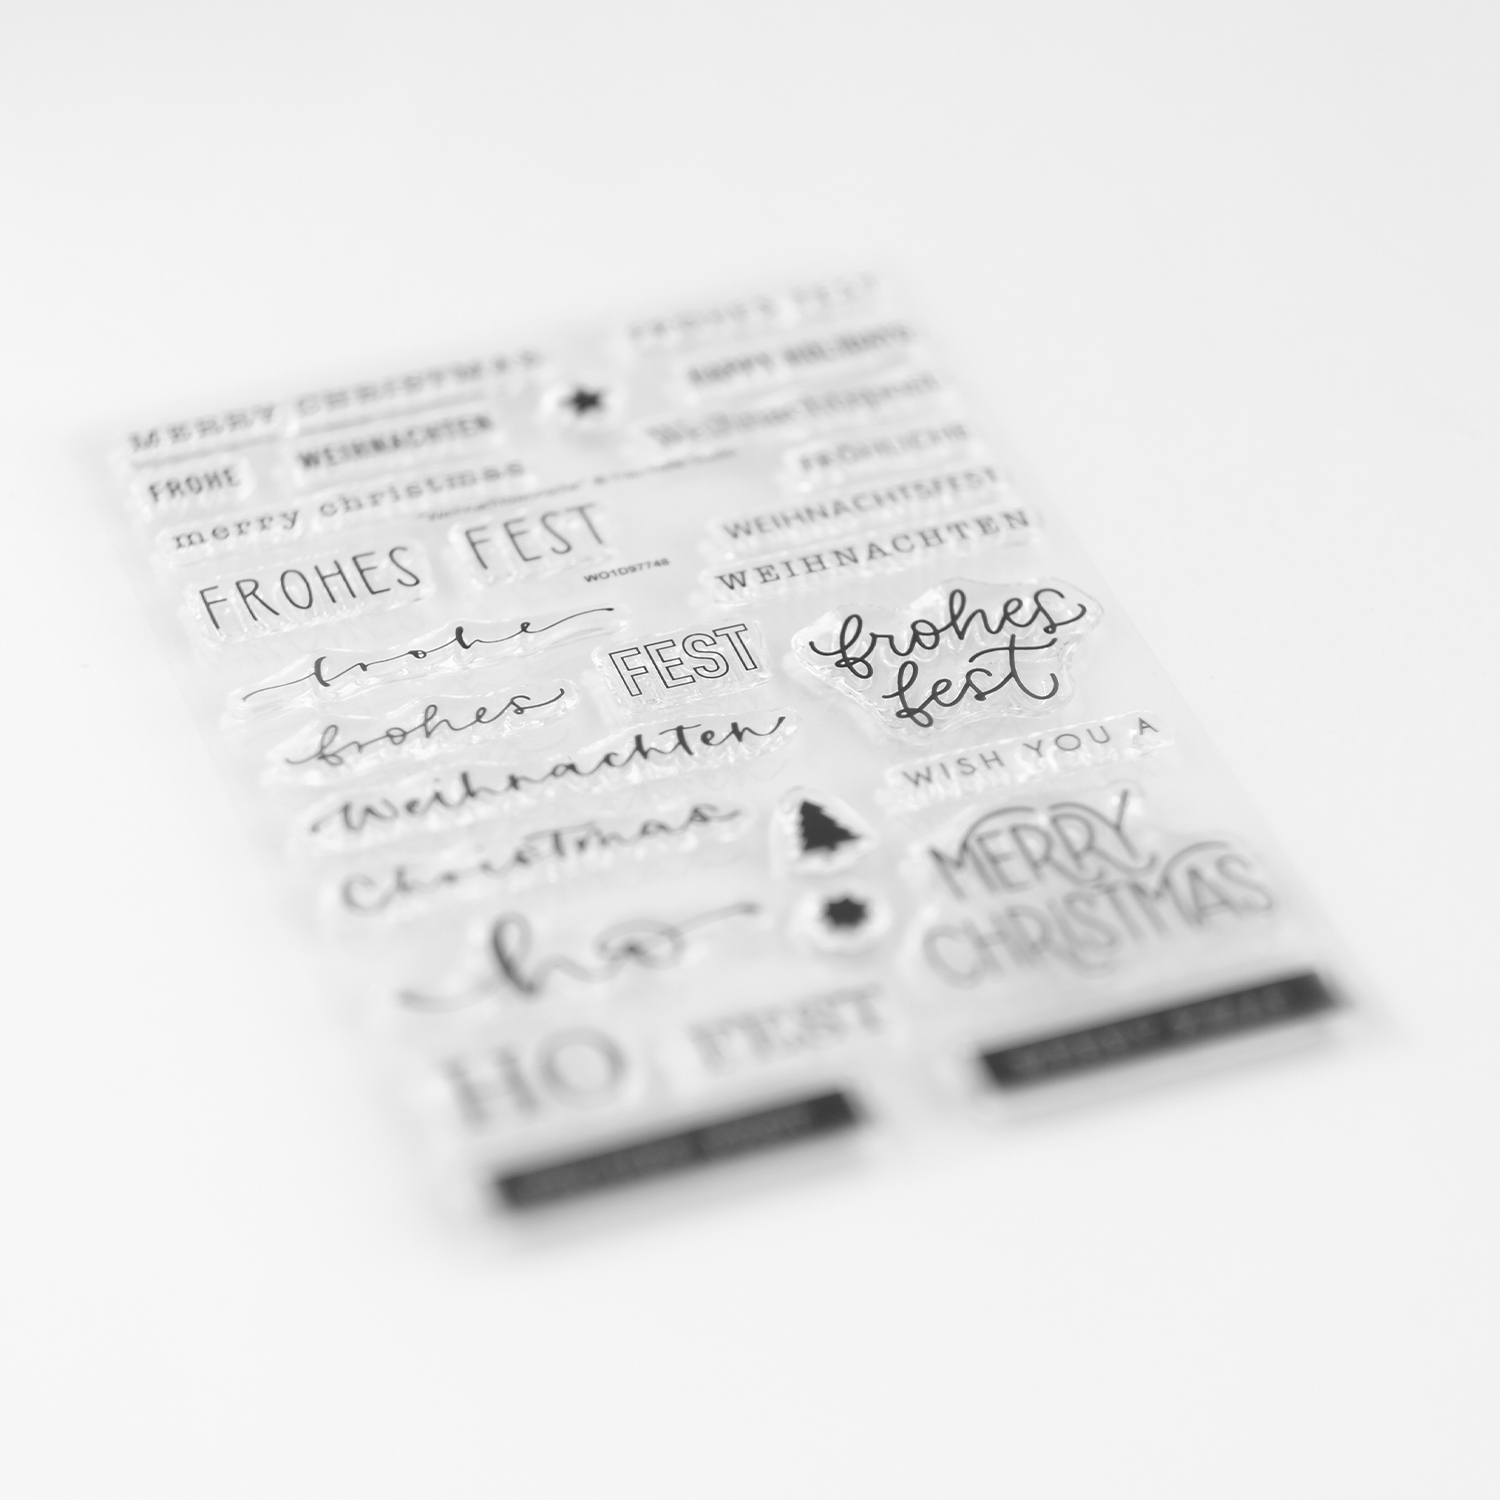 MERRY CHRISTMAS
FROHE
WEIHNACHTEN
merry christmas
FROHES
FEST
WO1D97748
frohe
frohes
FEST
Weihnachten
Christmas
ho
HO
FEST
FROHES FEST
HAPPY HOLIDAYS
Weihnachtspost
FRÖHLICHE
WEIHNACHTSFEST
WEIHNACHTEN
frohes
fest
WISH YOU A
MERRY
CHRISTMAS